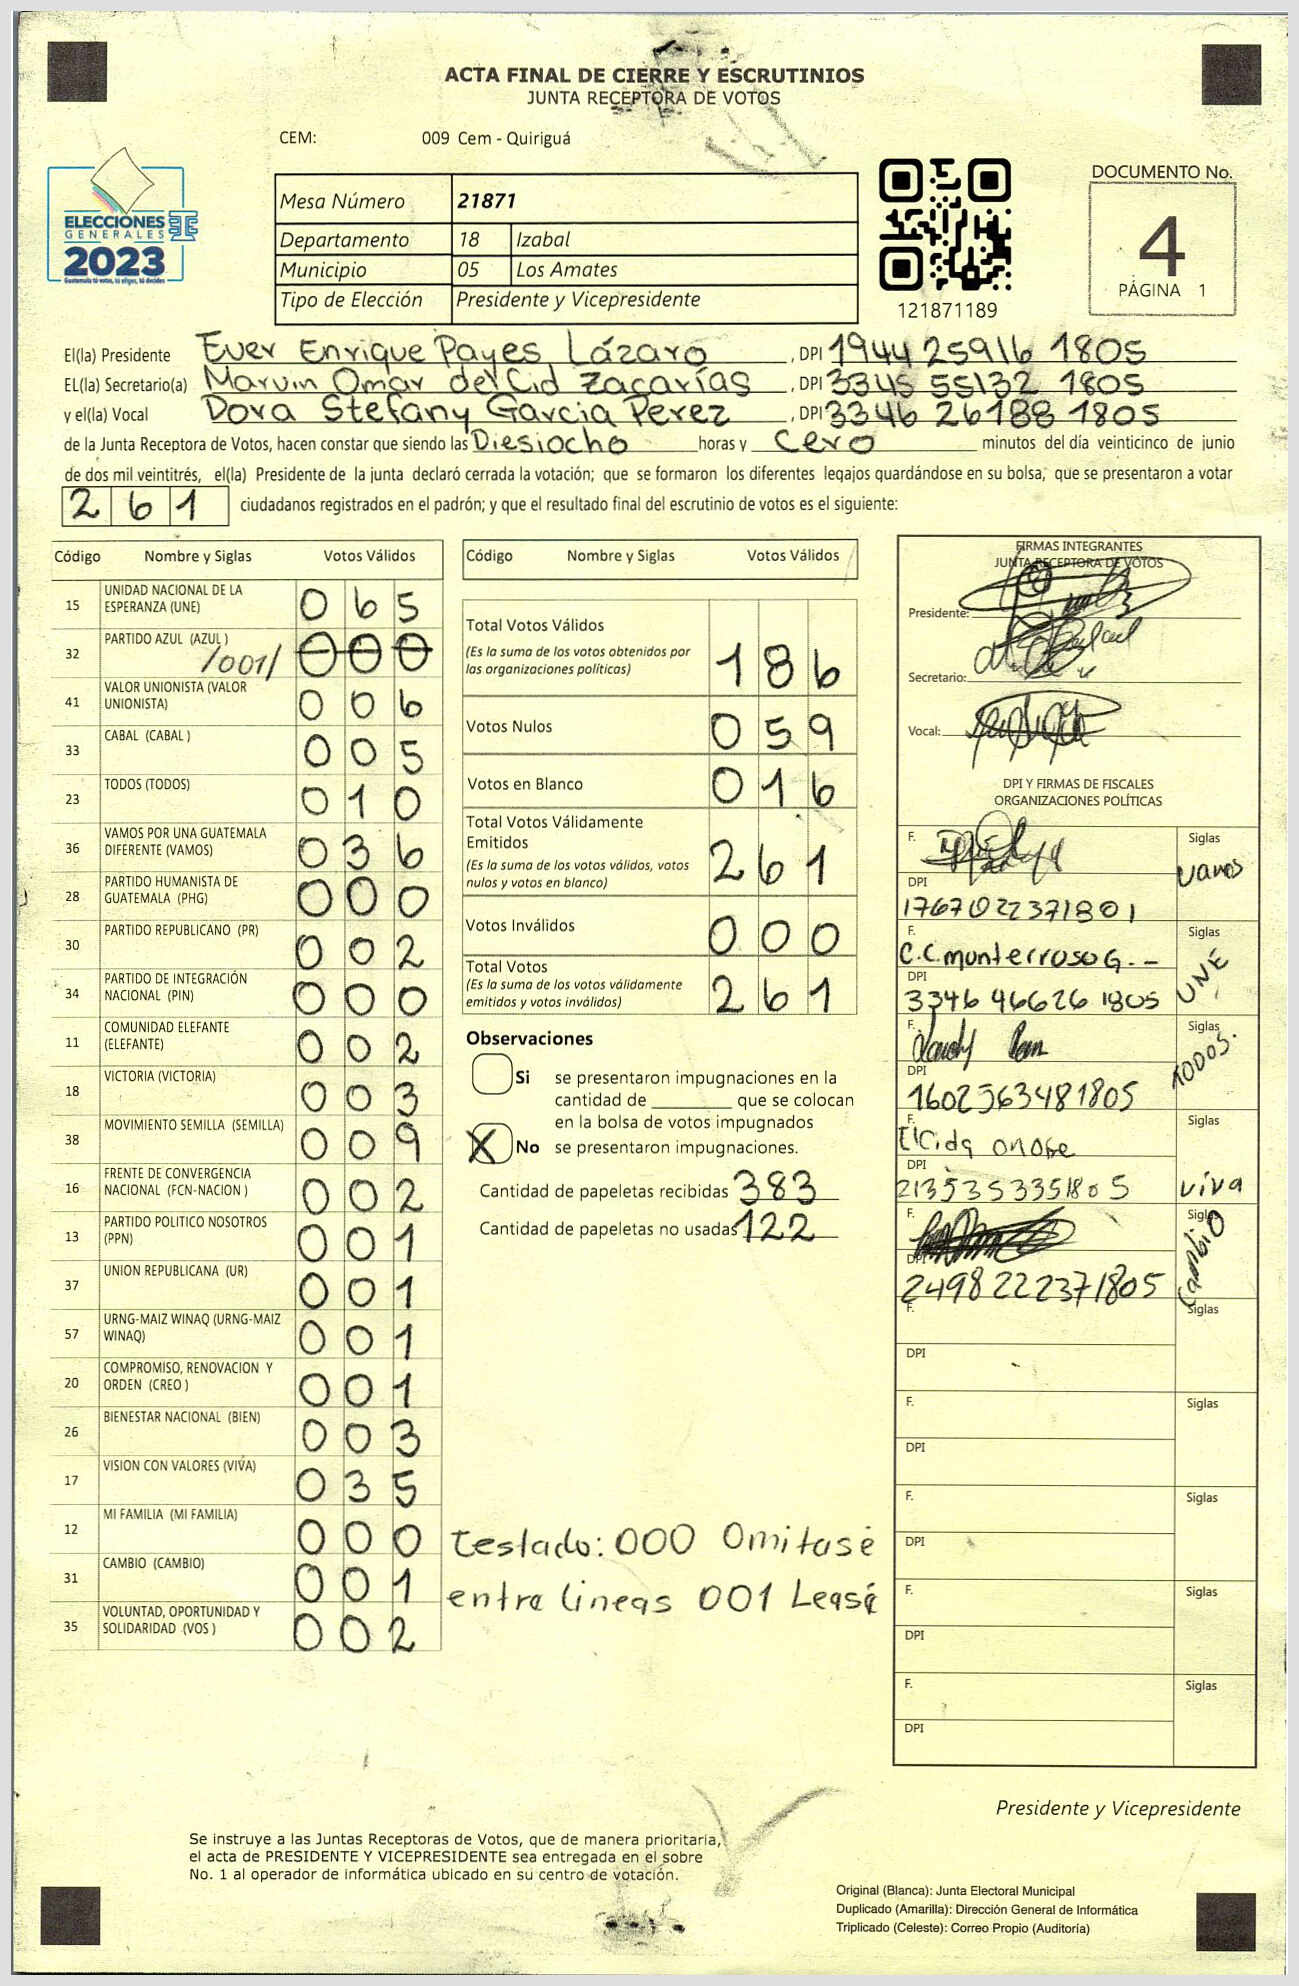 ACTA FINAL DE CIERRE Y ESCRUTINIOS
JUNTA RECEPTORA DE VOTOS
CEM: 009 Cem - Quiriguá
ELECCIONES
GENERALES
2023
Guatemala tú votas, tú eliges, tú decides
Mesa Número 21871
Departamento 18 Izabal
Municipio 05 Los Amates
Tipo de Elección Presidente y Vicepresidente
121871189
DOCUMENTO No.
4
PÁGINA 1
El(la) Presidente Ever Enrique Payes Lázaro, DPI 1944 25916 1805
EL(la) Secretario(a) Marvin Omar del Cid Zacarías, DPI 3345 55132 1805
y el(la) Vocal Dora Stefany Garcia Perez, DPI 3346 26188 1805
de la Junta Receptora de Votos, hacen constar que siendo las Diesiocho horas y cero minutos del día veinticinco de junio
de dos mil veintitrés, el(la) Presidente de la junta declaró cerrada la votación; que se formaron los diferentes legajos quardándose en su bolsa, que se presentaron a votar
261 ciudadanos registrados en el padrón; y que el resultado final del escrutinio de votos es el siguiente:
Código Nombre y Siglas Votos Válidos
15 UNIDAD NACIONAL DE LA ESPERANZA (UNE) 065
32 PARTIDO AZUL (AZUL ) /001/ 000
41 VALOR UNIONISTA (VALOR UNIONISTA) 006
33 CABAL (CABAL ) 005
23 TODOS (TODOS) 010
36 VAMOS POR UNA GUATEMALA DIFERENTE (VAMOS) 036
28 PARTIDO HUMANISTA DE GUATEMALA (PHG) 000
30 PARTIDO REPUBLICANO (PR) 002
34 PARTIDO DE INTEGRACIÓN NACIONAL (PIN) 000
11 COMUNIDAD ELEFANTE (ELEFANTE) 002
18 VICTORIA (VICTORIA) 003
38 MOVIMIENTO SEMILLA (SEMILLA) 009
16 FRENTE DE CONVERGENCIA NACIONAL (FCN-NACION ) 002
13 PARTIDO POLITICO NOSOTROS (PPN) 001
37 UNION REPUBLICANA (UR) 001
57 URNG-MAIZ WINAQ (URNG-MAIZ WINAQ) 001
20 COMPROMISO, RENOVACION Y ORDEN (CREO ) 001
26 BIENESTAR NACIONAL (BIEN) 003
17 VISION CON VALORES (VIVA) 035
12 MI FAMILIA (MI FAMILIA) 000
31 CAMBIO (CAMBIO) 001
35 VOLUNTAD, OPORTUNIDAD Y SOLIDARIDAD (VOS ) 002
Código Nombre y Siglas Votos Válidos
Total Votos Válidos 186
(Es la suma de los votos obtenidos por
las organizaciones políticas)
Votos Nulos 059
Votos en Blanco 016
Total Votos Válidamente
Emitidos 261
(Es la suma de los votos válidos, votos
nulos y votos en blanco)
Votos Inválidos 000
Total Votos 261
(Es la suma de los votos válidamente
emitidos y votos inválidos)
Observaciones
Si se presentaron impugnaciones en la
cantidad de ________ que se colocan
en la bolsa de votos impugnados
X No se presentaron impugnaciones.
Cantidad de papeletas recibidas 383
Cantidad de papeletas no usadas 122
testado: 000 Omitase
entre lineas 001 Leasé
FIRMAS INTEGRANTES
JUNTA RECEPTORA DE VOTOS
Presidente:
Secretario:
Vocal:
DPI Y FIRMAS DE FISCALES
ORGANIZACIONES POLÍTICAS
F. Siglas vamos
DPI 1767 02237 1801
F. C.C.monterroso G. Siglas UNE
DPI 3346 46626 1805
F. Siglas TODOS.
DPI 1602563481805
F. Siglas viva
DPI 2135353351805
F. Siglas Cambio
DPI 2498 222371805
F. Siglas
DPI
F. Siglas
DPI
F. Siglas
DPI
F. Siglas
DPI
F. Siglas
DPI
Presidente y Vicepresidente
Se instruye a las Juntas Receptoras de Votos, que de manera prioritaria,
el acta de PRESIDENTE Y VICEPRESIDENTE sea entregada en el sobre
No. 1 al operador de informática ubicado en su centro de votación.
Original (Blanca): Junta Electoral Municipal
Duplicado (Amarilla): Dirección General de Informática
Triplicado (Celeste): Correo Propio (Auditoría)